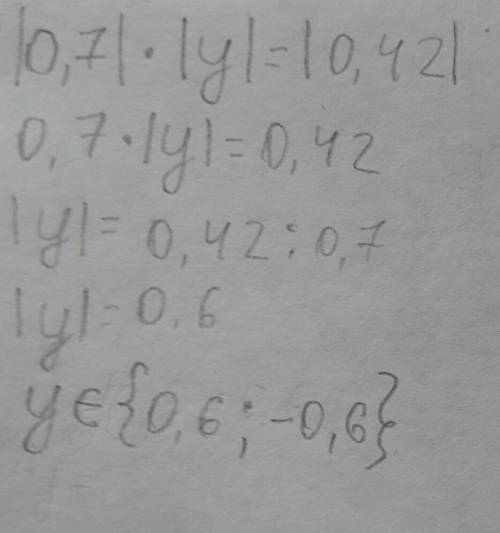 |0,7| · |y| = |0,42|
0,7 · |y| = 0,42
|y| = 0,42 : 0,7
|y| = 0,6
y ∈ {0,6 ; -0,6}